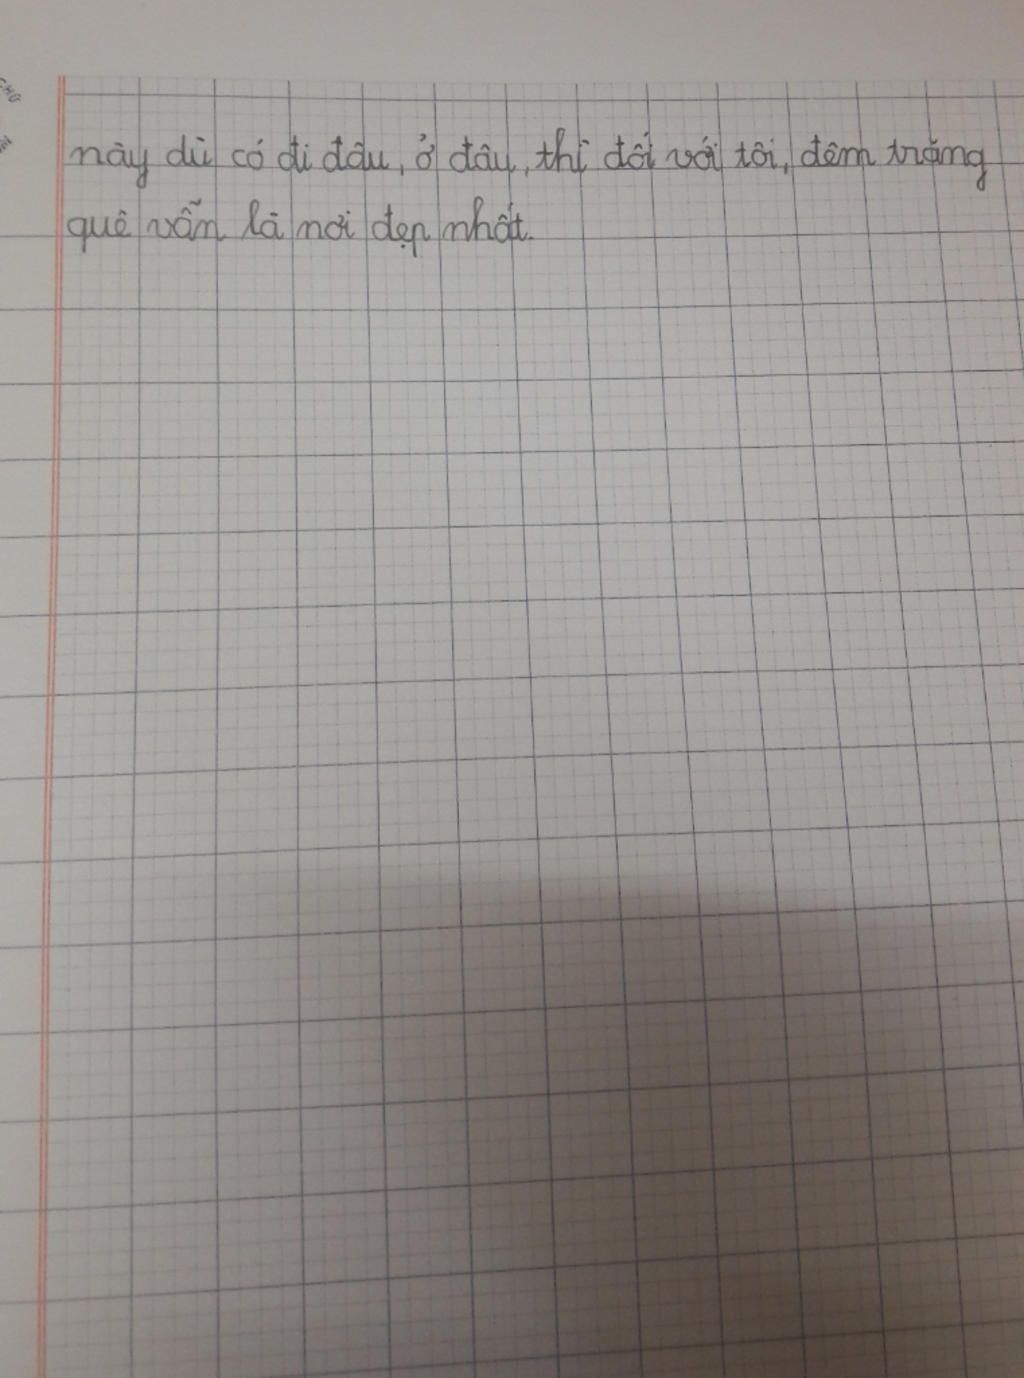 này dù có đi đâu, ở đâu, thì đối với tôi, đêm trăng
quê vẫn là nơi đẹp nhất.